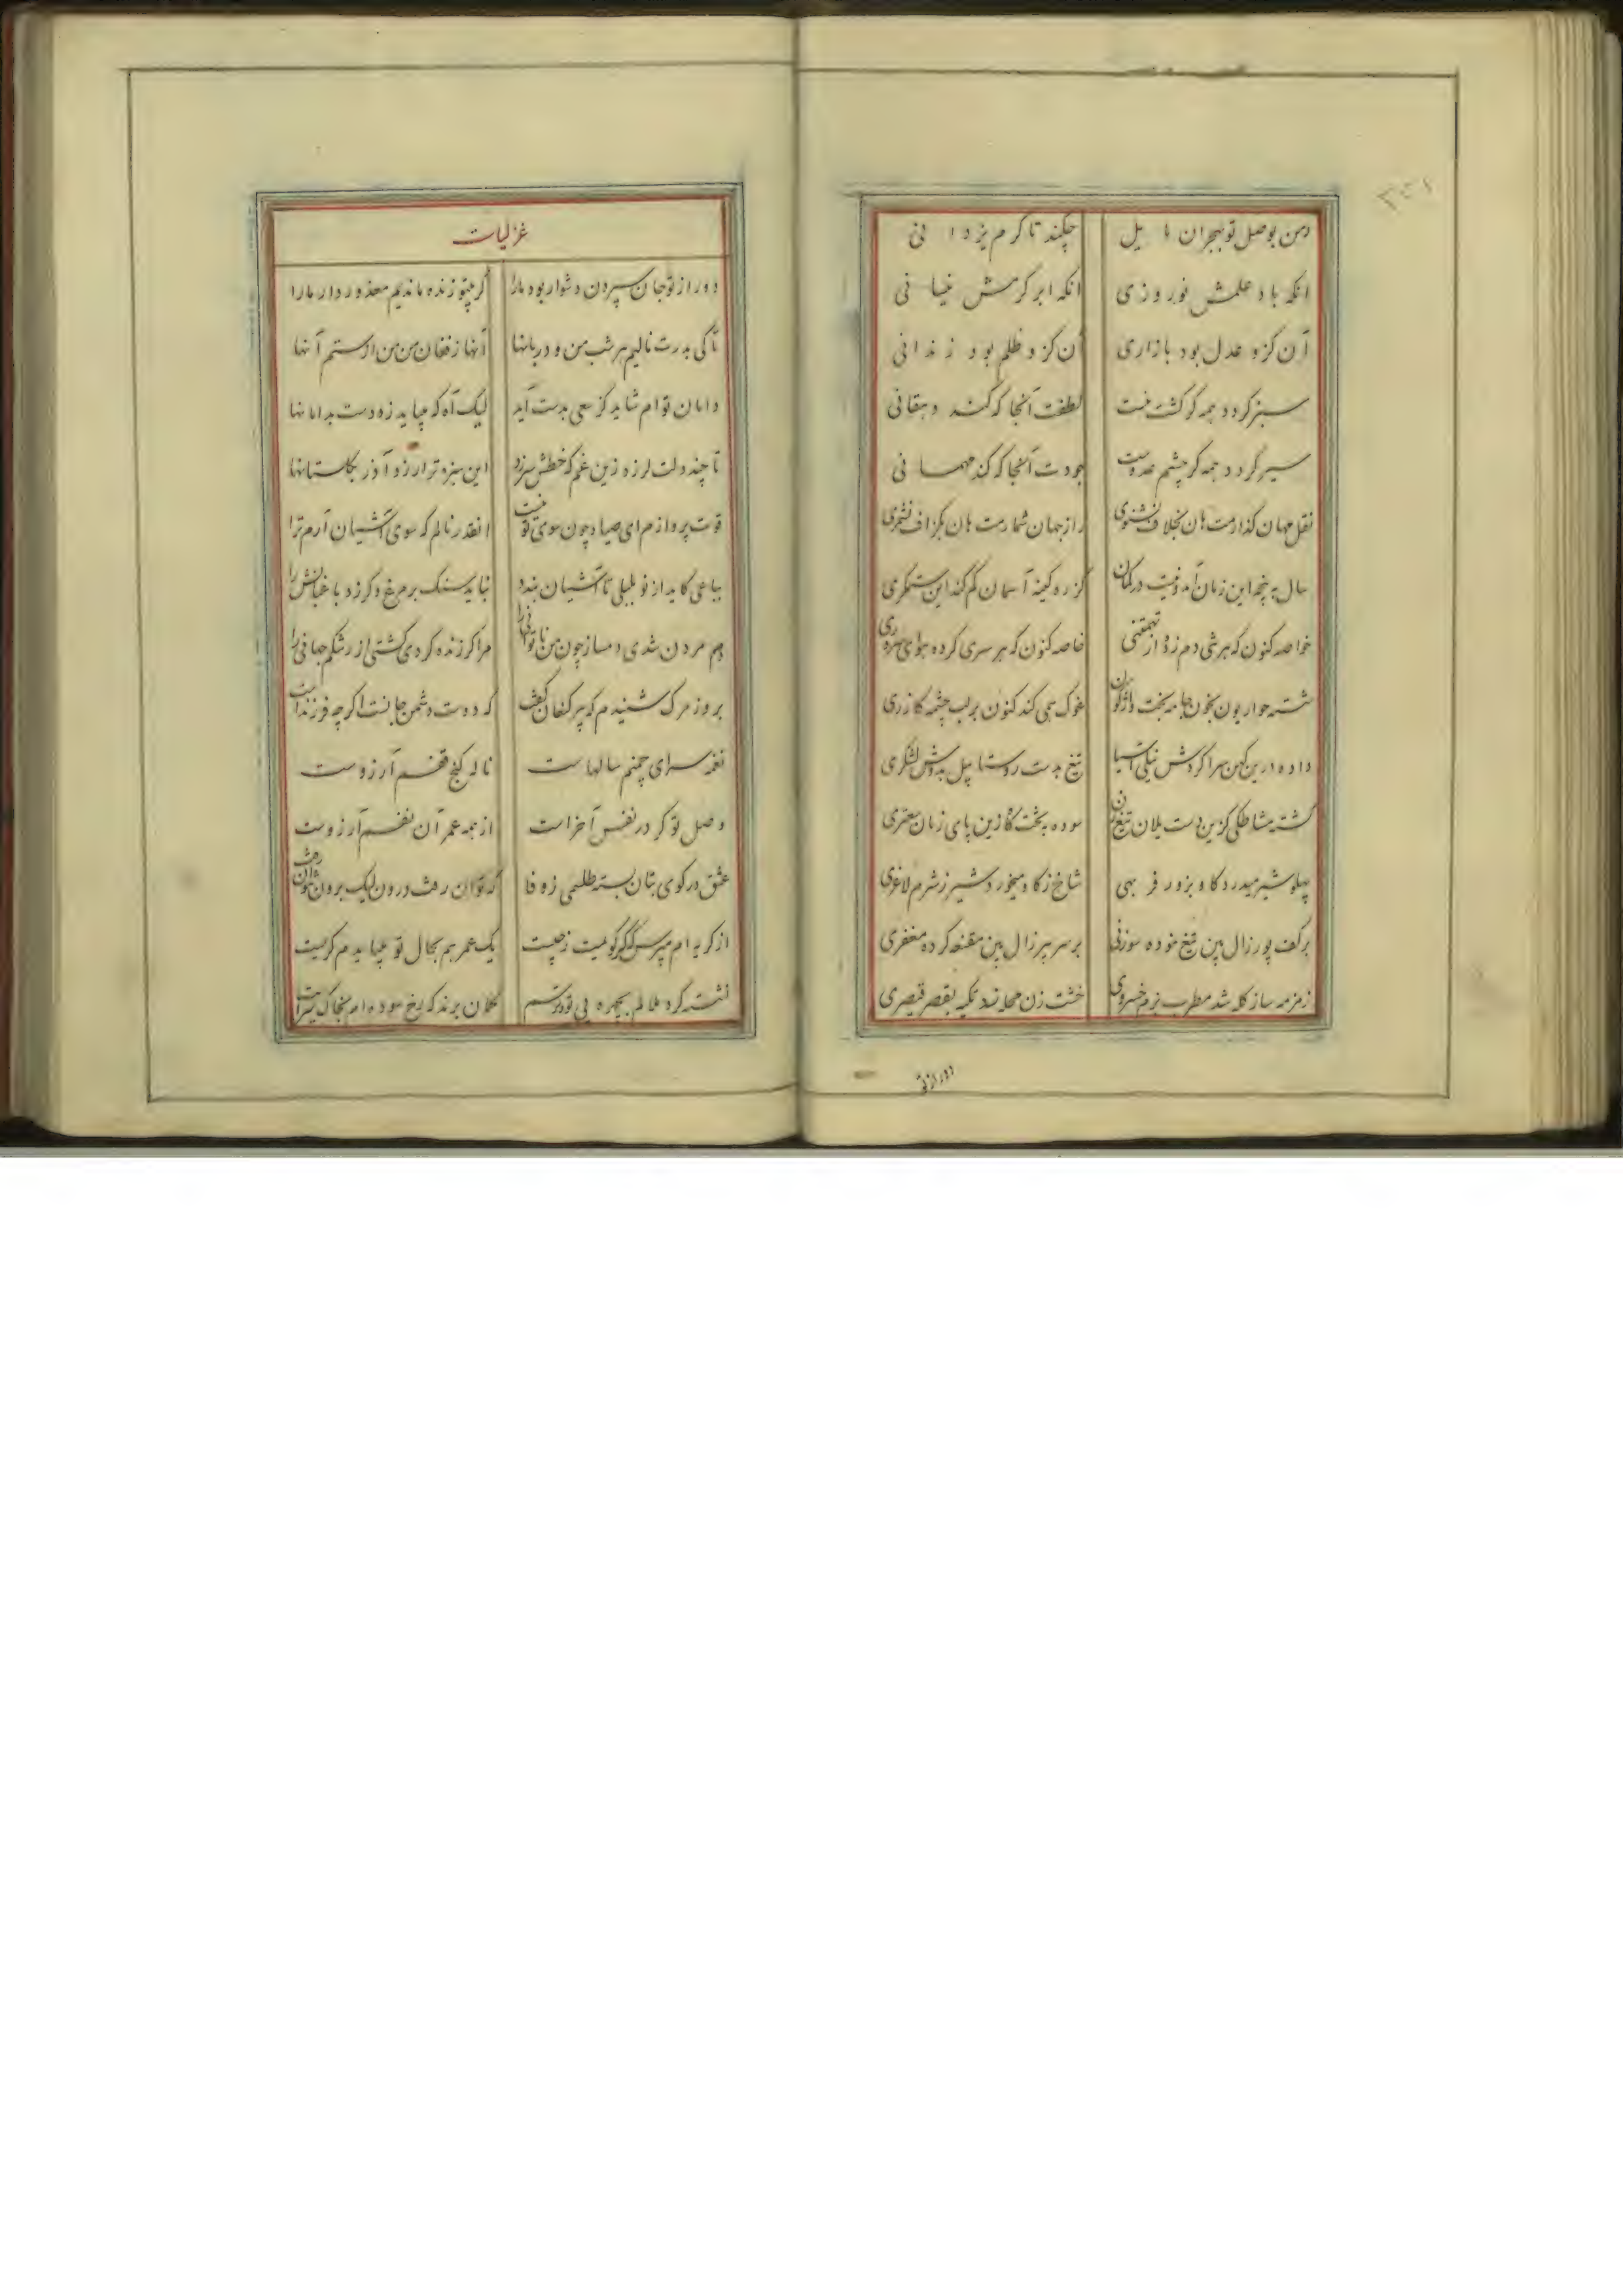 من بوصل تو بهجران مایل چکند تا کرم یزدانی
انکه باد علمش نوروزی انکه ابر کرمش نیسانی
آن کزو عدل بود بازاری آن کزو ظلم بود زندانی
سبز کردد همه کر کشت منست لطفت آنجا که کند دهقانی
سیر کردد همه کر چشم عدوست جودت آنجا که کند مهمانی
نقل جهان کذارمت هان بخلاف نشنوی راز جهان شمارمت هان بکزاف نشمری
این زمان کز ره کینه آسمان کم کند این ستمکری
خاصه کنون که هر سری کرده هوای سروری
غوک همی کند کنون بر لب چشمه کازری
تیغ بدست روستا بیل بدوش لشکری
کشته مشاطکی کزین دست یلان تیغ زن سوده به تخت کازین پای زنان
پهلو شیر میدرد کاو بزور فربهی شاخ ز کاو میخورد شیر ز شرم لاغری
بر کف پور زال بین تیغ نموده سوزنی بر سر پیر زال بین مقنعه کرده مغفری
زمزمه ساز کله شد مطرب بزم خسروی خشت زن محله زد تکیه بقصر قیصری
دور از تو
غزلیات
دور از تو جان سپردن دشوار بود ما را کر بیتو زنده ماندیم معذور دار ما را
تا کی بدرت نالیم هر شب من و دربانها آنها ز فغان من من از ستم آنها
دامان توام شاید کز سعی بدست آید لیک آه که میباید زد دست بدامانها
تا چند دلت لرزد زین غم که خطش سرزد این سبزه تر ارزد آذر بکلستانها
قوت پرواز مرا ای صیاد چون سوی تو نیست انقدر نالم که سوی آشیان آرم ترا
بباغی کاید از نو بلبلی تا آشیان بندد نباید سنک بر مرغ دکر زد باغبانش را
دم مردن شدی دمساز چون من ناتوانی را مرا کر زنده کردی کشتی از رشکم جهانی را
بروز مرک شنیدم که پیر کنعان کفت که دوست دشمن جانست اکر چه فرزند است
نغمه سرای چمنم سالهاست ناله کنج قفسم آرزوست
وصل تو کر در نفس آخر است از همه عمر آن نفسم آرزوست
عشق در کوی بتان بسته طلسمی ز وفا که توان رفت درون لیک برون نتوان رفت
از کریه ام مپرس که کر کویمت ز چیست یک عمر هم بحال تو میباید م کریست
نشست کرد ملالم بچهره بی تو و ترسم کمان برند که رخ سوده ام بخاک سرایت